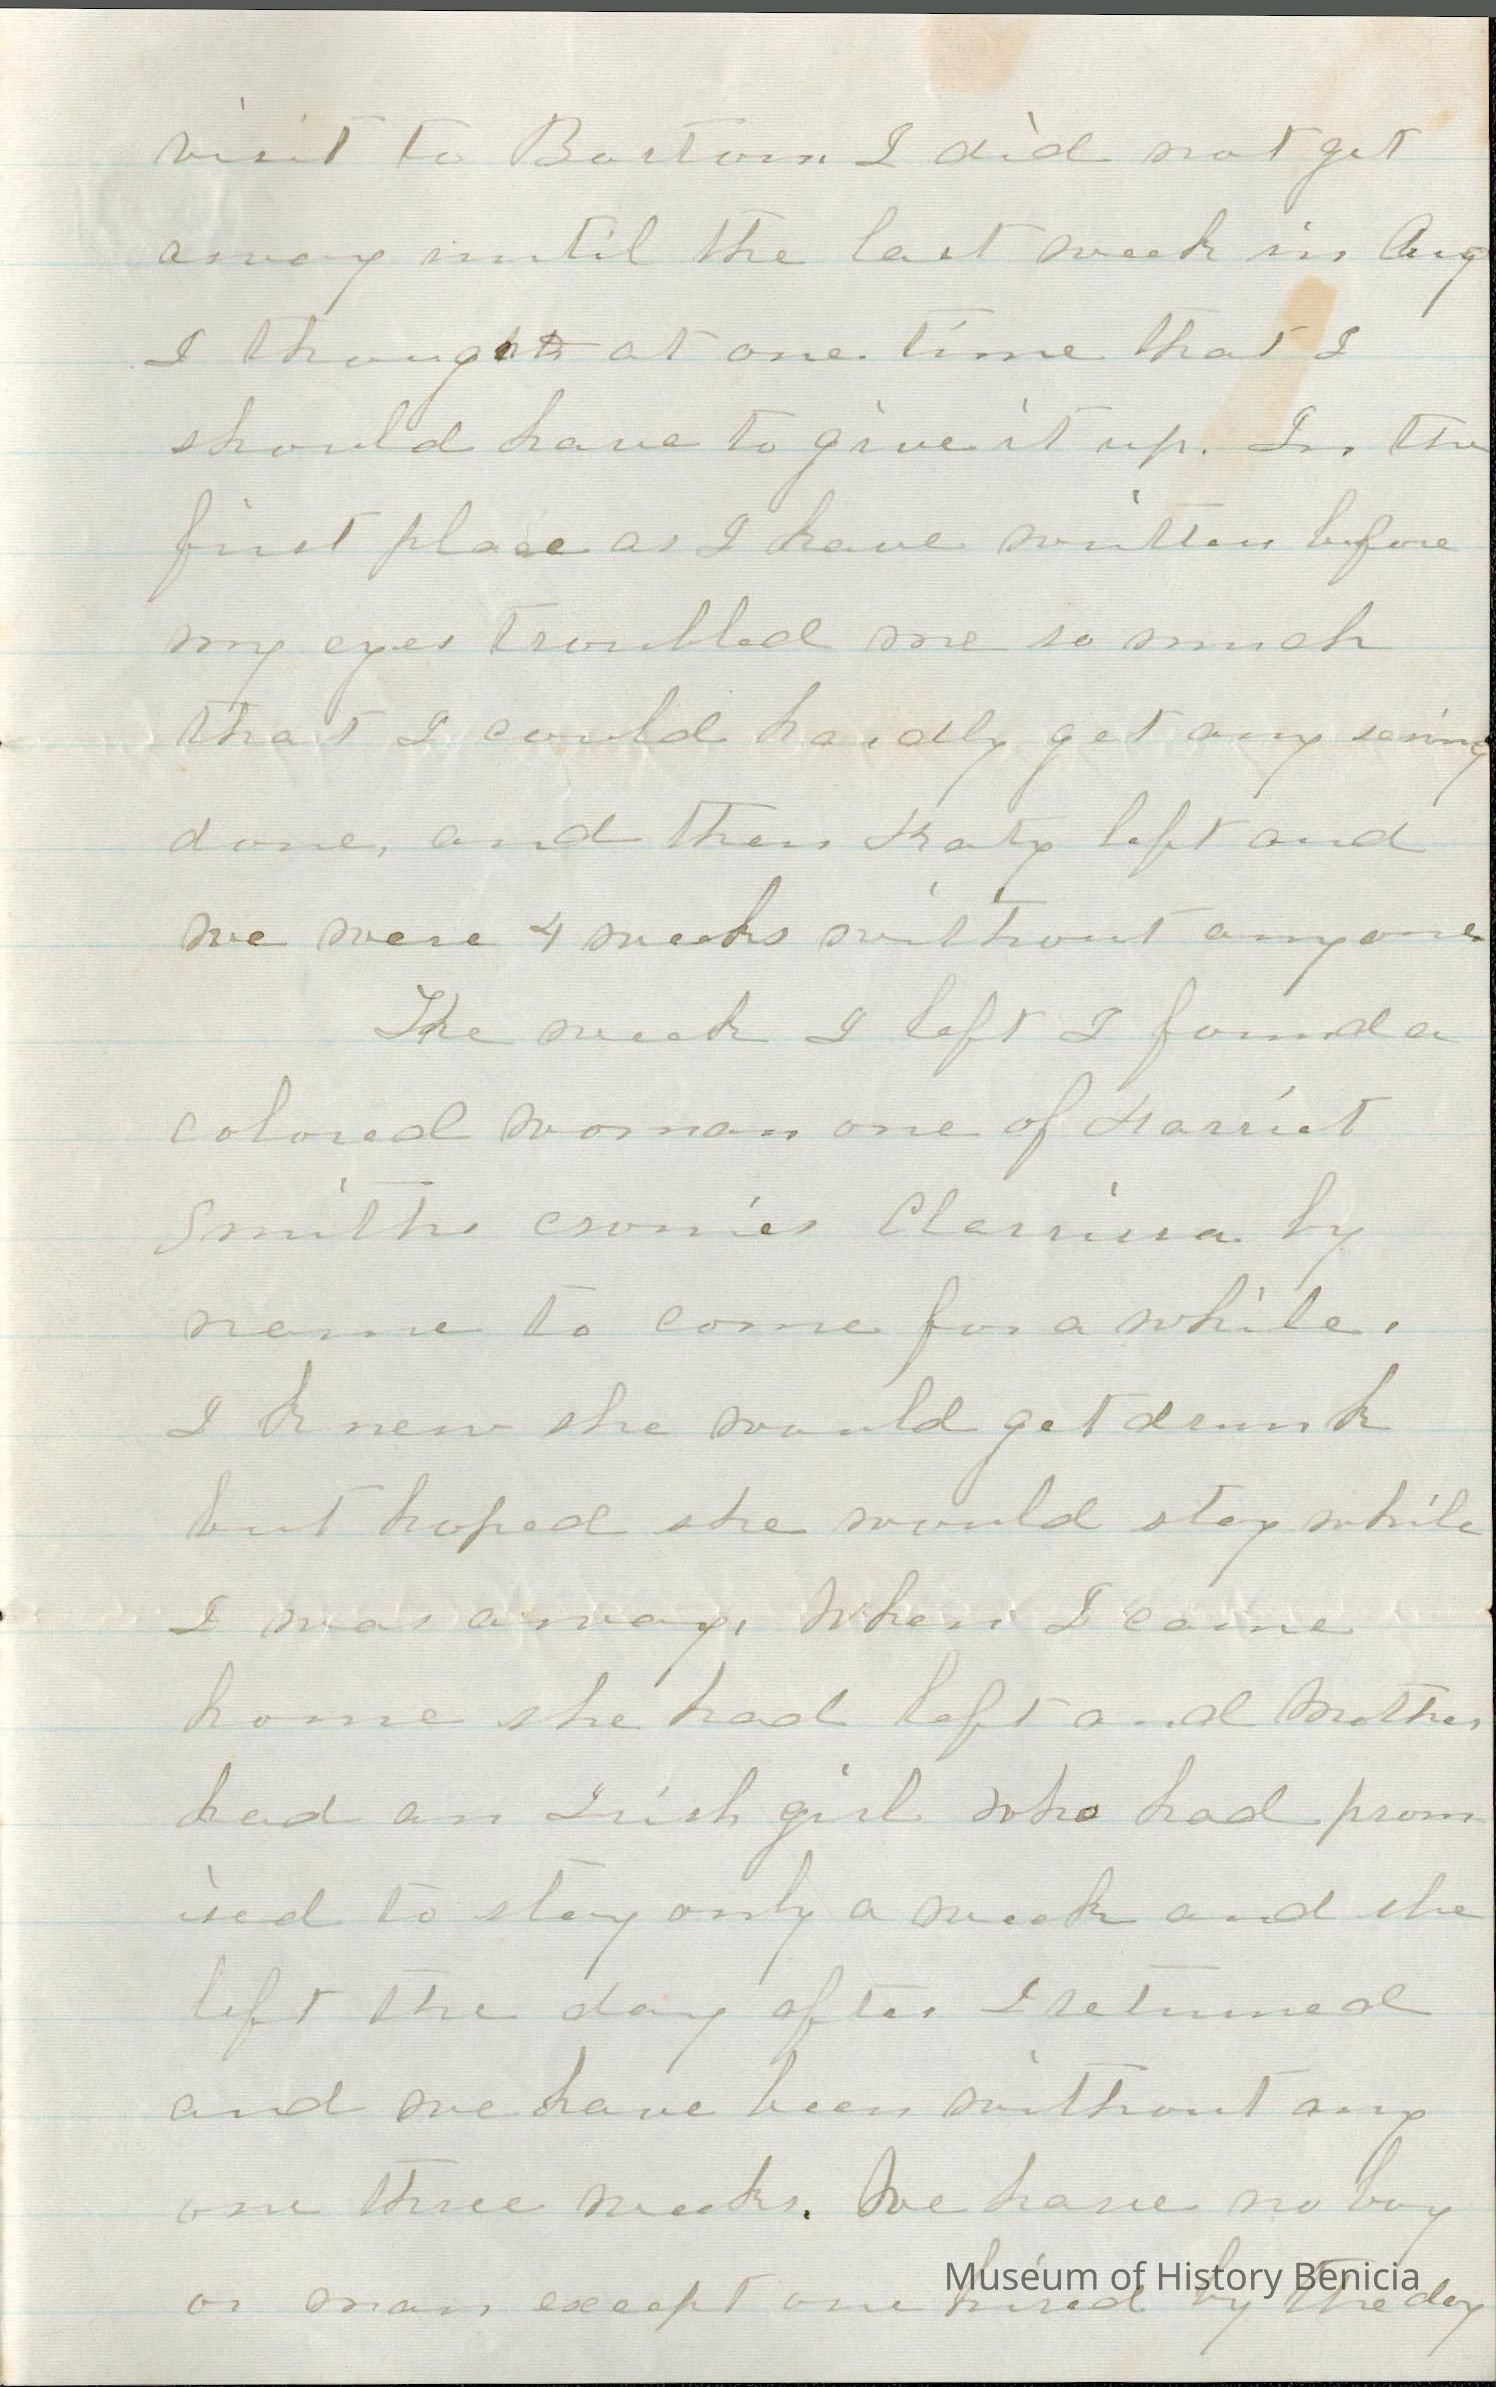 visit to Boston. I did not get
away until the last week in Aug
I thought at one time that I
should have to give it up. In the
first place as I have written before
my eyes troubled me so much
that I could hardly get any sewing
done, and then Katy left and
we were 4 weeks without anyone
The week I left I found a
colored woman one of Harriet
Smiths cronies Clarrissa by
name to come for a while.
I knew she would get drunk
but hoped she would stay while
I was away. When I came
home she had left and Mother
had an Irish girl who had prom
ised to stay only a week and she
left the day after I returned
and we have been without any
one three weeks. We have no boy
or man except one hired by the day
Museum of History Benicia